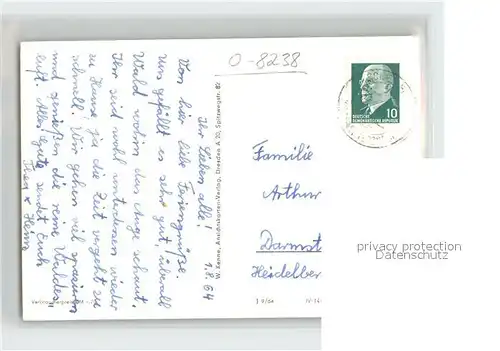 O-8238
Ihr Lieben alle! 1.8.64
Von hier liebe Feriengrüsse.
Uns gefällt es sehr gut! Überall
Wald wohin das Auge schaut.
Ihr seid wohl unterdessen wieder
zu Hause ja die Zeit vergeht zu
schnell. Wir gehen viel spazieren
und genießen die reine Waldes-
luft. Alles Gute sendet Euch
W. Kenne, Ansichtskarten-Verlag, Dresden A 20, Spitzwegstr. 82
DEUTSCHE
DEMOKRATISCHE REPUBLIK
10
Familie
Arthur
Darmst
Heidelber
J 9/64
IV-14
privacy protection
Datenschutz